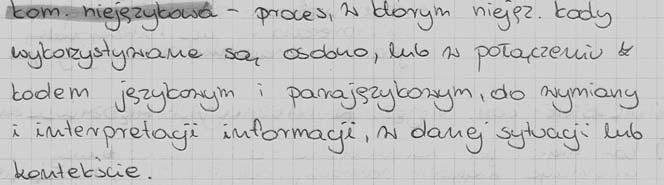 kom. niejęzykowa - proces, w którym niejęz. kody
wykorzystywane są, osobno, lub w połączeniu z
kodem językowym i parajęzykowym, do wymiany
i interpretacji informacji, w danej sytuacji lub
kontekście.